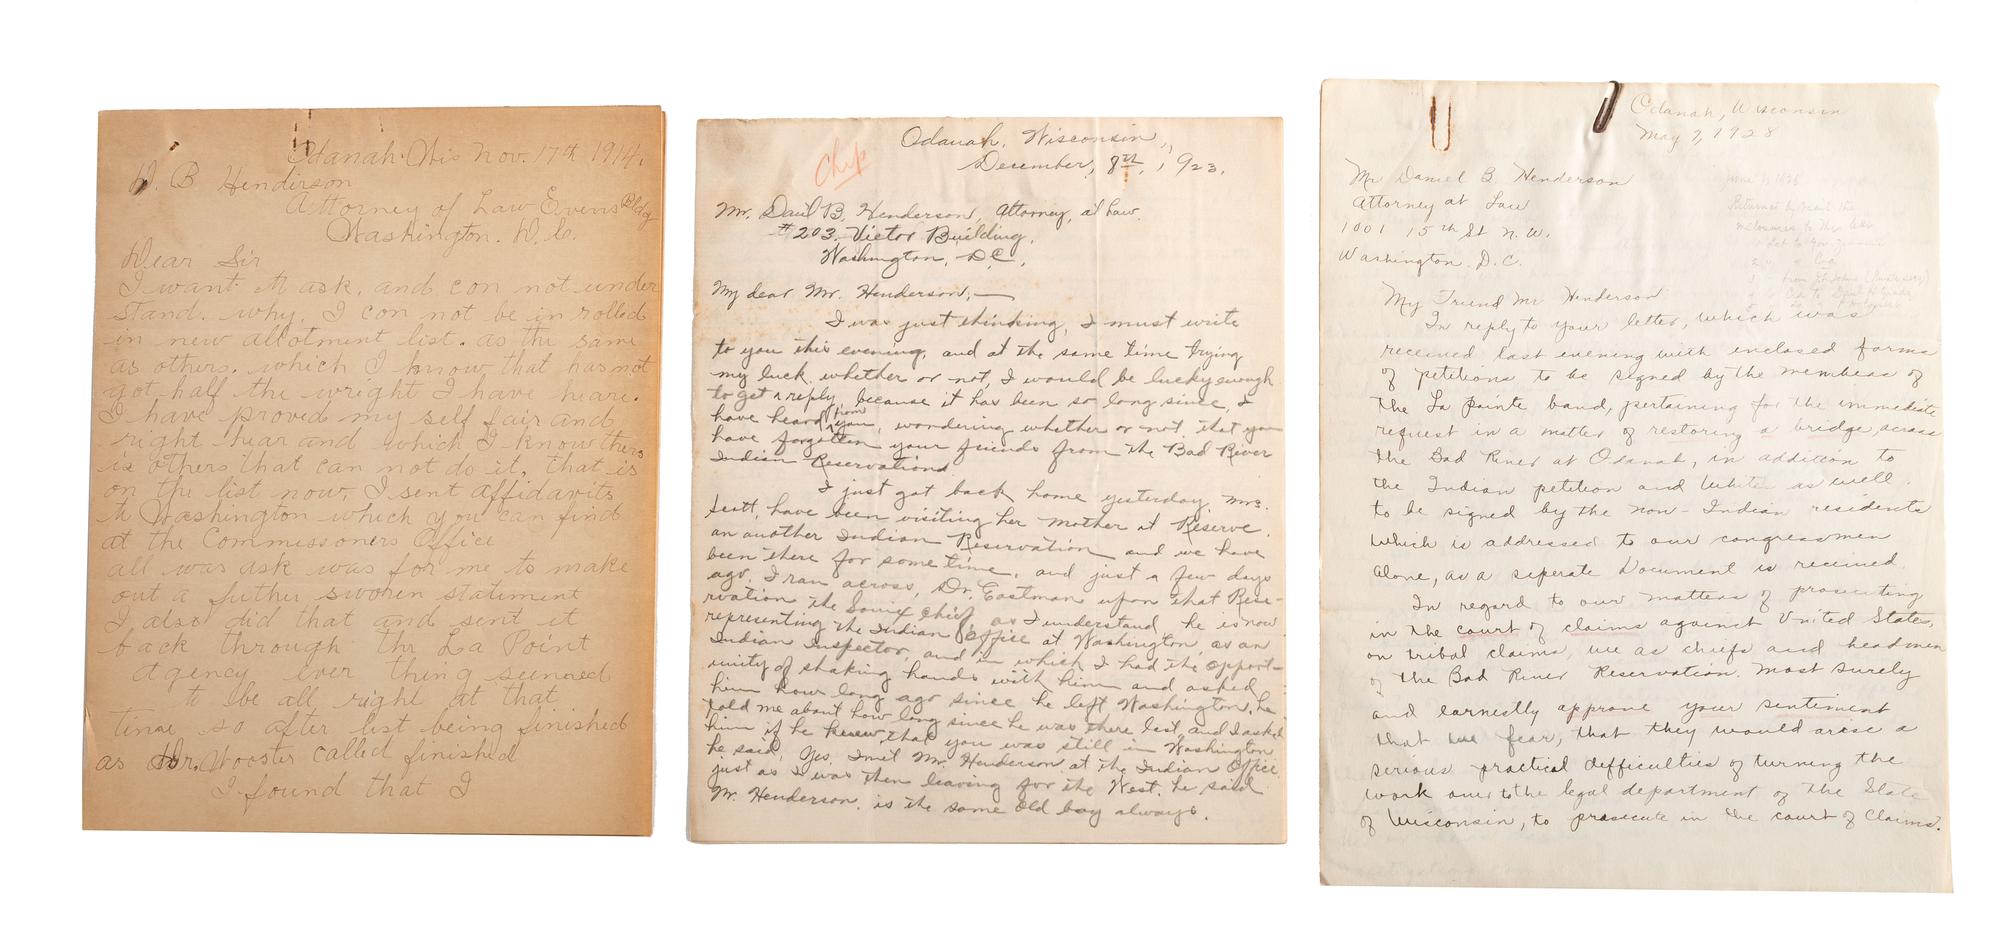 Odanah. Wis Nov. 17th 1914.
D. B Henderson
Attorney of Law Evens Bldg
Washington. D. C.
Dear Sir
I want to ask. and con not under
stand. why. I con not be in rolled
in new allotment list. as the same
as others. which I know that has not
got half the wright I have heare.
I have proved my self fair and
right hear and which I know thers
is others that can not do it. that is
on the list now. I sent affidavits
to Washington which you can find
at the Commissoners Office
all was ask was for me to make
out a futher sworen statiment
I also did that and sent it
back through the La Point
agency ever thing seemed
to be all right at that
time so after list being finished
as Mr. Wooster called finished
I found that I
Chip
Odanah, Wisconsin,
December, 8th, 1923.
Mr. Danl B. Henderson, Attorney, at Law.
#203. Victor Building,
Washington, D.C.,
My dear Mr. Henderson,—
I was just thinking, I must write
to you this evening, and at the same time trying
my luck. whether or not, I would be lucky enough
to get a reply, because it has been so long since, I
have heard from you, wondering whether or not, that you
have forgotten your friends from the Bad River
Indian Reservations
I just got back home yesterday, Mrs.
Scott, have been visiting her mother at Reserve.
an another Indian Reservation and we have
been there for some time, and just a few days
ago, I ran across, Dr. Eastman upon that Rese-
rvation the Souix Chief, as I understand, he is now
representing the Indian Office at Washington, as an
Indian Inspector, and in which I had the opport-
unity of shaking hands with him and asked
him how long ago since he left Washington, he
told me about how long since he was there last, and I asked
him if he knew that you was still in Washington
he said, Yes, I met Mr. Henderson at the Indian Office
just as I was then leaving for the West, he said
Mr. Henderson. is the same old boy always.
Odanah, Wisconsin
May 7, 1928
Mr Daniel B. Henderson
Attorney at Law
1001 15th St N.W.
Washington D.C.
My Friend Mr Henderson
In reply to your letter, which was
received last evening with enclosed forms
of petitions to be signed by the members of
the La Pointe band, pertaining for the immediate
request in a matter of restoring a bridge, across
the Bad River at Odanah, in addition to
the Indian petition and Whites as well.
to be signed by the non-Indian residents
which is addressed to our congressmen
alone, as a seperate Document is received.
In regard to our matters of prosecuting
in the court of claims against United States,
on tribal claims, we as chiefs and headmen
of the Bad River Reservation. most surely
and earnestly approve your sentiment
that we fear, that they would arise a
serious practical difficulties of turning the
work over to the legal department of the State
of Wisconsin, to prosecute in the court of Claims.